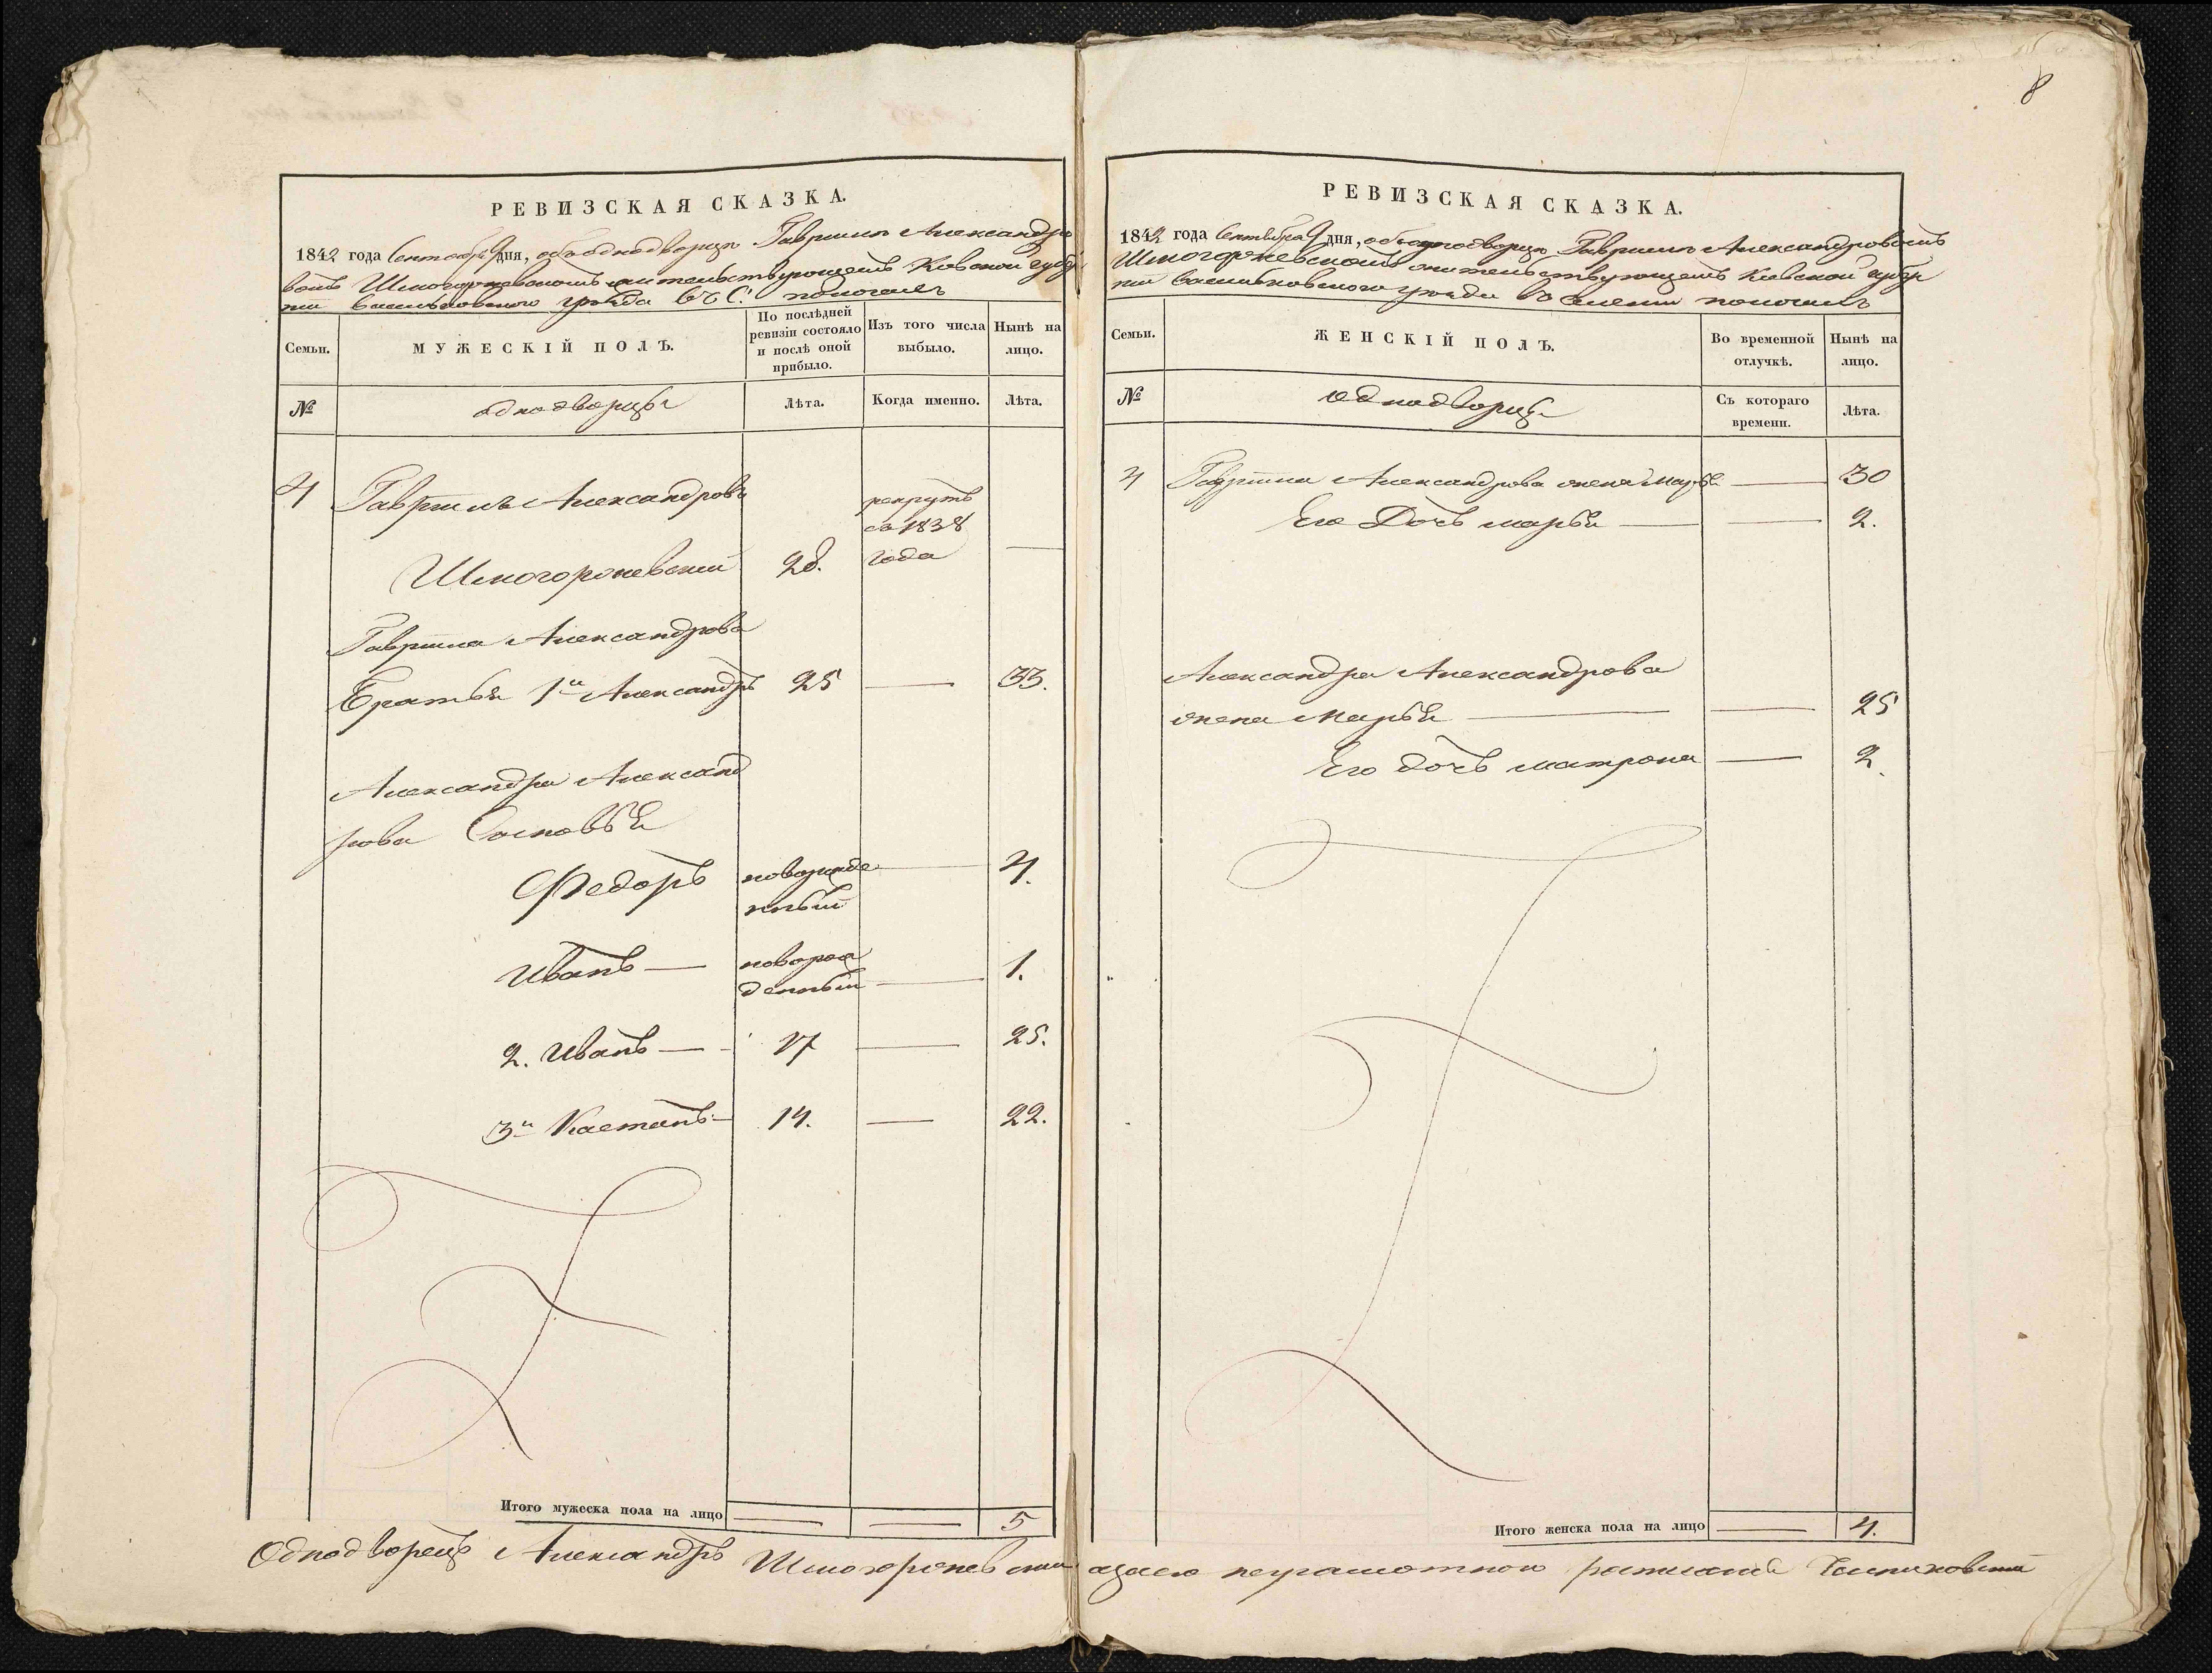 РЕВИЗСКАЯ СКАЗКА.
1842 года Сентября 9 дня, объ однодворцѣ Гаврилѣ Александро
вомъ жительствующемъ Кіевской губер
ніи Васильковскаго уѣзда въ С:
Семьи.
МУЖЕСКІЙ ПОЛЪ.
По послѣдней
ревизіи состояло
и послѣ оной
прибыло.
Изъ того числа
выбыло.
Нынѣ на
лицо.
№
однодворцы
Лѣта.
Когда именно.
Лѣта.
4 Гаврилъ Александровъ
рекрутъ
съ 1838
года
28.
Гаврила Александрова
Братья 1й Александръ 25 — 33.
Александра Александ
рова Сыновья
Федоръ новорожде
нный — 4.
Иванъ — новорож
денный — 1.
2. Иванъ — 17 — 25.
3й Каетанъ — 14. — 22.
Итого мужеска пола на лицо — — 5
8
РЕВИЗСКАЯ СКАЗКА.
1842 года Сентября 9 дня, объ однодворцѣ Гаврилѣ Александровомъ
жительствующемъ Кіевской губер
ніи Васильковскаго уѣзда въ селеніи
Семьи.
ЖЕНСКІЙ ПОЛЪ.
Во временной
отлучкѣ.
Нынѣ на
лицо.
№
однодворцы
Съ котораго
времени.
Лѣта.
4 Гаврила Александрова жена Марья — 30
Его Дочь марья — — 2.
Александра Александрова
жена Марья — — 25
Его дочь матрона — 2.
Итого женска пола на лицо — 4.
Однодворецъ Александръ неграмотною